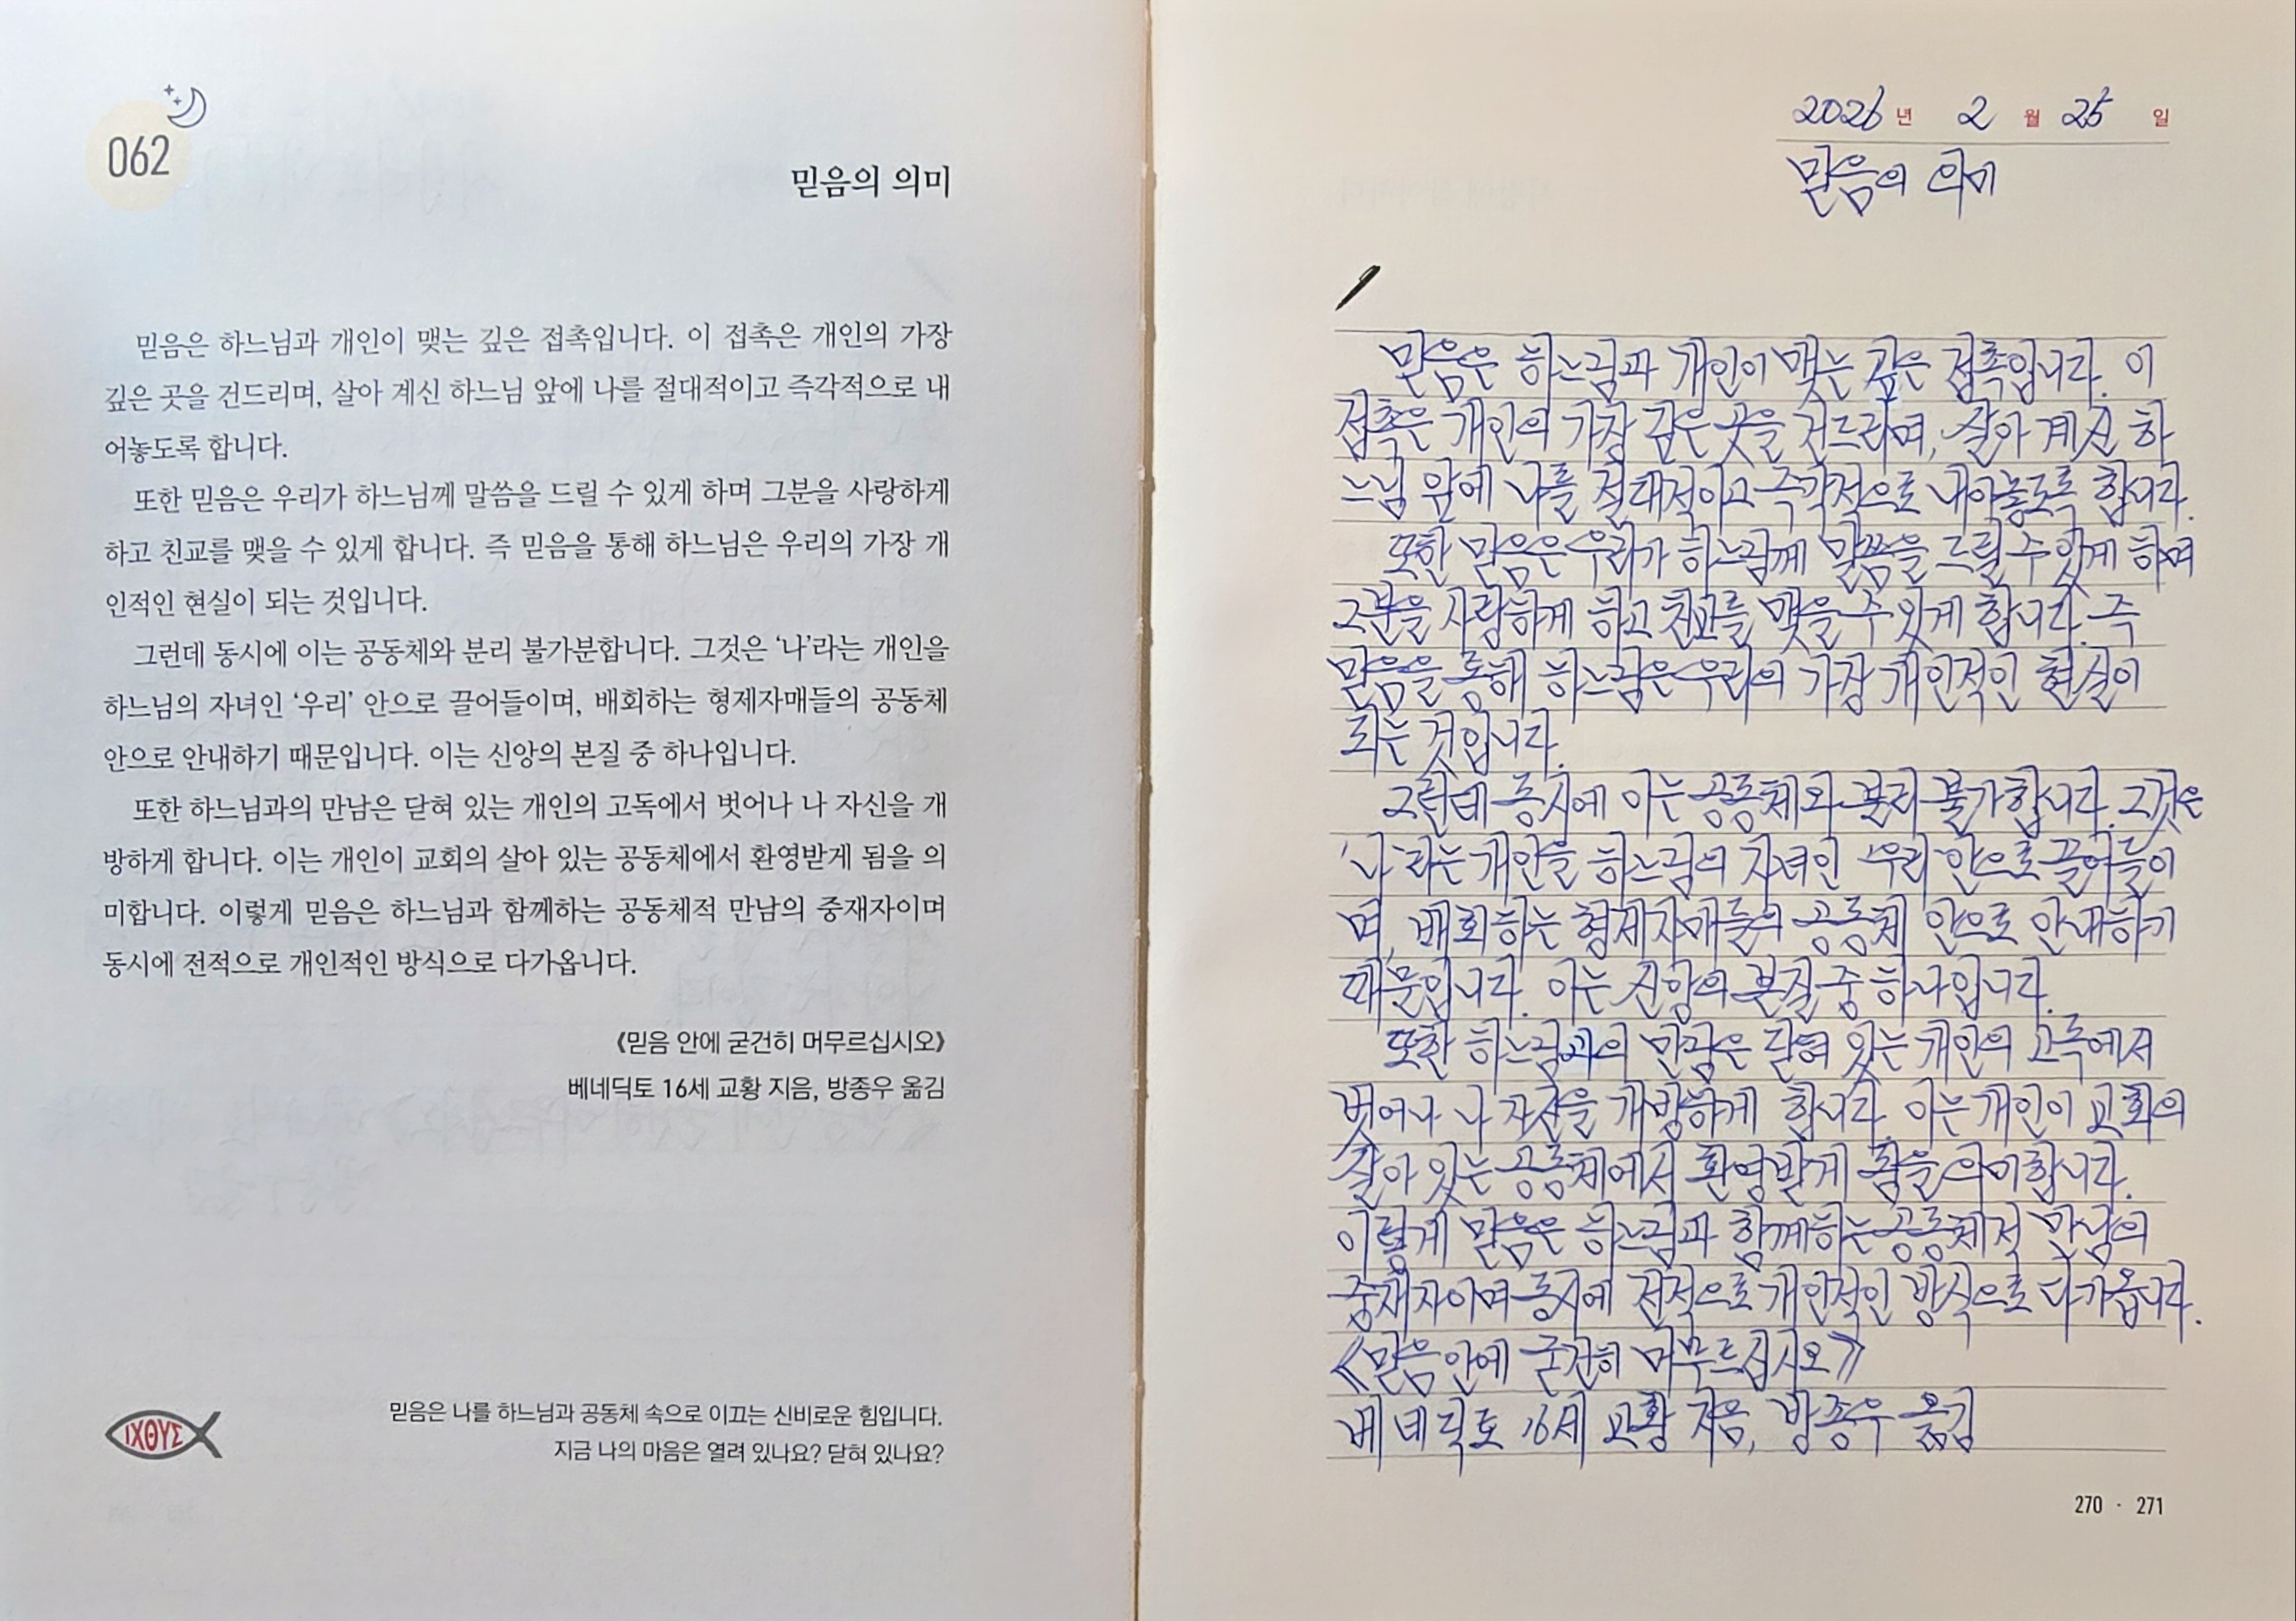 062
믿음의 의미
믿음은 하느님과 개인이 맺는 깊은 접촉입니다. 이 접촉은 개인의 가장
깊은 곳을 건드리며, 살아 계신 하느님 앞에 나를 절대적이고 즉각적으로 내
어놓도록 합니다.
또한 믿음은 우리가 하느님께 말씀을 드릴 수 있게 하며 그분을 사랑하게
하고 친교를 맺을 수 있게 합니다. 즉 믿음을 통해 하느님은 우리의 가장 개
인적인 현실이 되는 것입니다.
그런데 동시에 이는 공동체와 분리 불가분합니다. 그것은 ‘나’라는 개인을
하느님의 자녀인 ‘우리’ 안으로 끌어들이며, 배회하는 형제자매들의 공동체
안으로 안내하기 때문입니다. 이는 신앙의 본질 중 하나입니다.
또한 하느님과의 만남은 닫혀 있는 개인의 고독에서 벗어나 나 자신을 개
방하게 합니다. 이는 개인이 교회의 살아 있는 공동체에서 환영받게 됨을 의
미합니다. 이렇게 믿음은 하느님과 함께하는 공동체적 만남의 중재자이며
동시에 전적으로 개인적인 방식으로 다가옵니다.
《믿음 안에 굳건히 머무르십시오》
베네딕토 16세 교황 지음, 방종우 옮김
ΙΧΘΥΣ
믿음은 나를 하느님과 공동체 속으로 이끄는 신비로운 힘입니다.
지금 나의 마음은 열려 있나요? 닫혀 있나요?
2026년 2월 25일
믿음의 의미
믿음은 하느님과 개인이 맺는 깊은 접촉입니다. 이
접촉은 개인의 가장 깊은 곳을 건드리며, 살아 계신 하
느님 앞에 나를 절대적이고 즉각적으로 내어놓도록 합니다.
또한 믿음은 우리가 하느님께 말씀을 드릴 수 있게 하며
그분을 사랑하게 하고 친교를 맺을 수 있게 합니다. 즉
믿음을 통해 하느님은 우리의 가장 개인적인 현실이
되는 것입니다.
그런데 동시에 이는 공동체와 분리 불가합니다. 그것은
'나'라는 개인을 하느님의 자녀인 '우리' 안으로 끌어들이
며, 배회하는 형제자매들의 공동체 안으로 안내하기
때문입니다. 이는 신앙의 본질 중 하나입니다.
또한 하느님과의 만남은 닫혀 있는 개인의 고독에서
벗어나 나 자신을 개방하게 합니다. 이는 개인이 교회의
살아 있는 공동체에서 환영받게 됨을 의미합니다.
이렇게 믿음은 하느님과 함께하는 공동체적 만남의
중재자이며 동시에 전적으로 개인적인 방식으로 다가옵니다.
《믿음 안에 굳건히 머무르십시오》
베네딕토 16세 교황 지음, 방종우 옮김
270 · 271